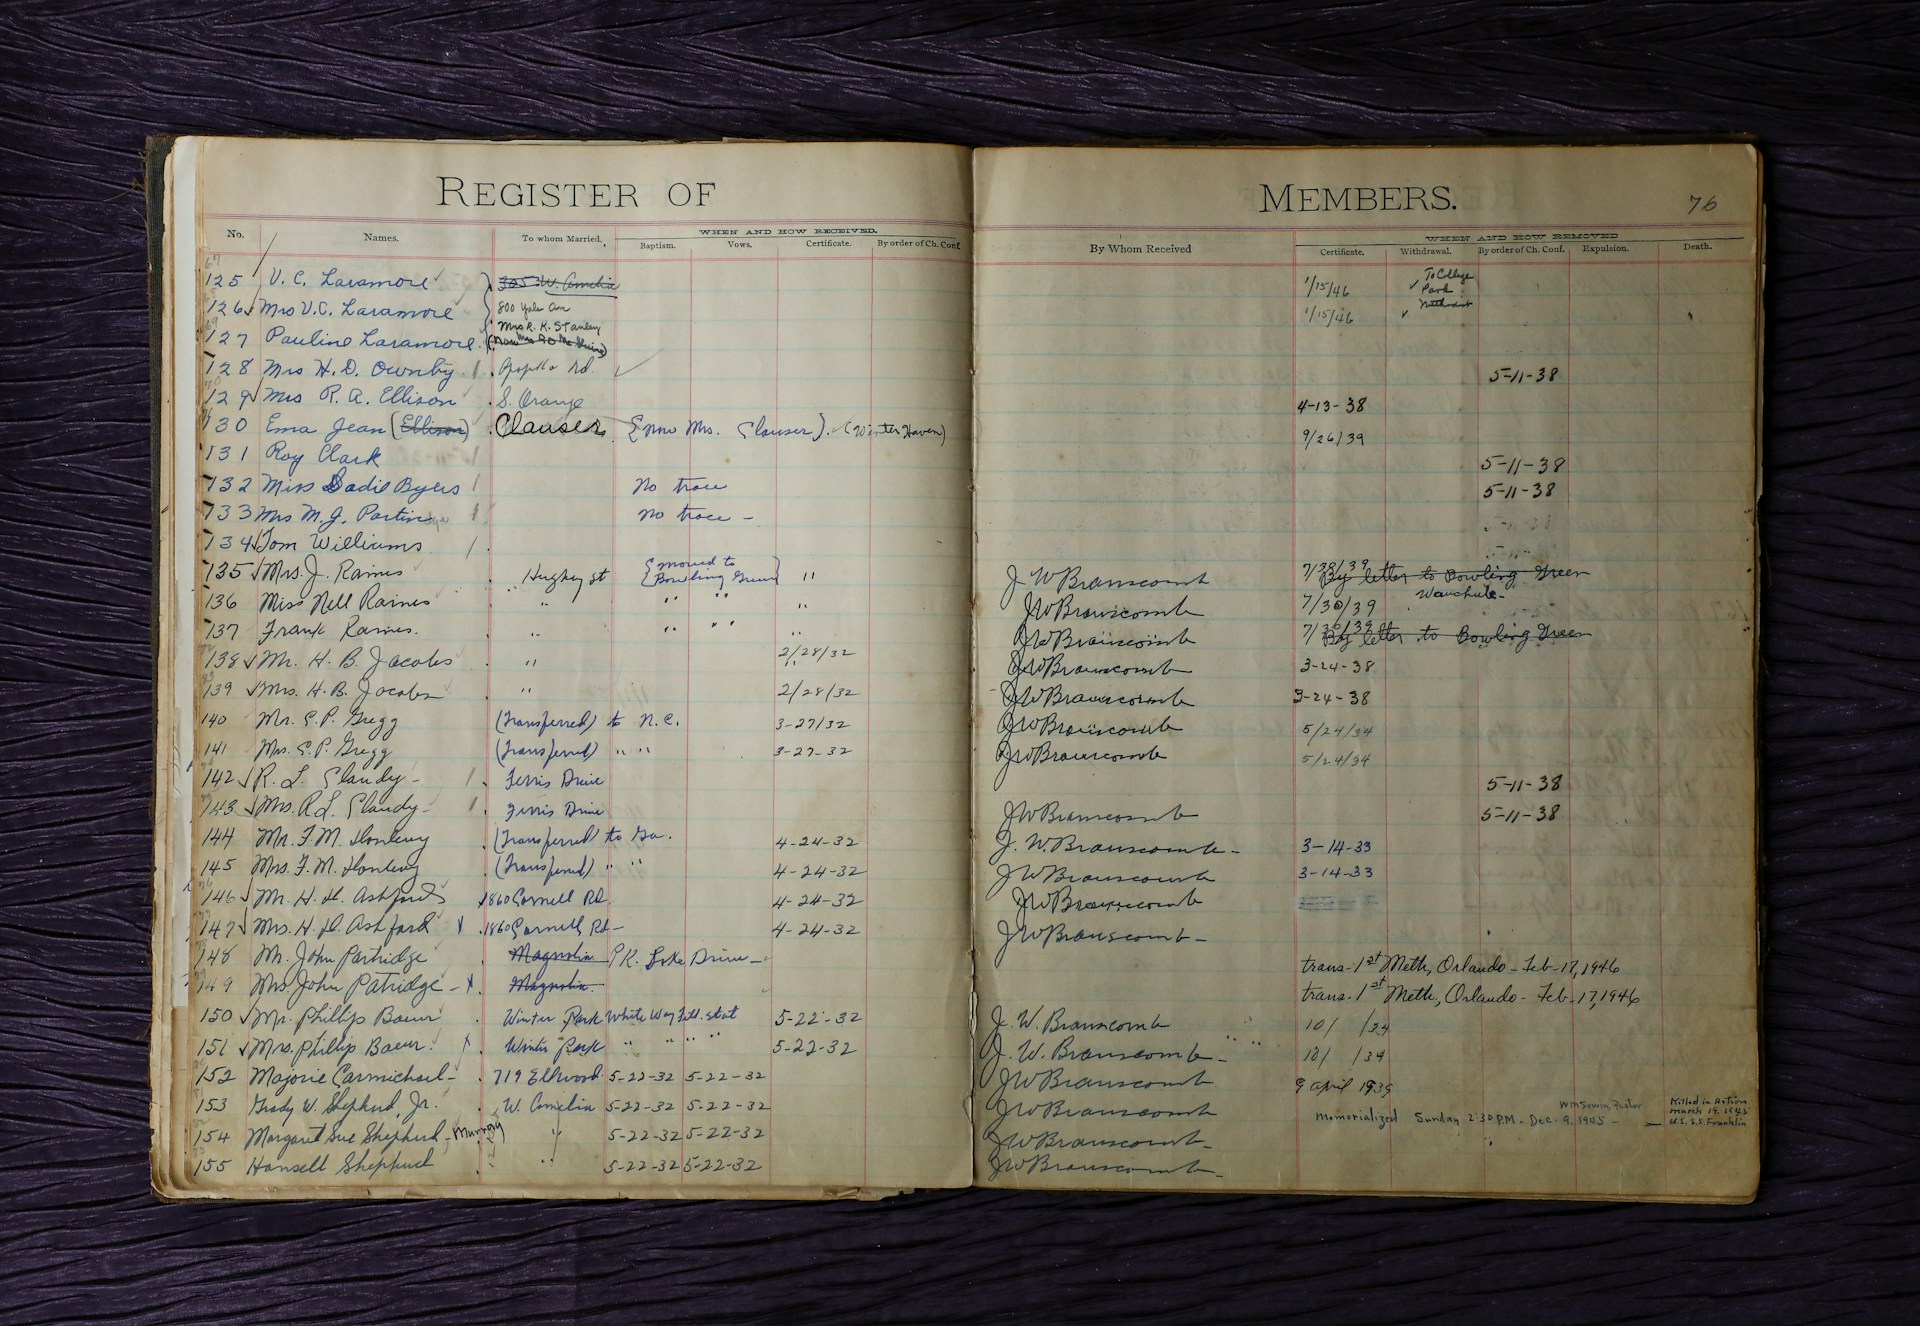 REGISTER OF MEMBERS. 76
WHEN AND HOW RECEIVED. WHEN AND HOW REMOVED
No. Names. To whom Married. Baptism. Vows. Certificate. By order of Ch. Conf. By Whom Received Certificate. Withdrawal. By order of Ch. Conf. Expulsion. Death.
125 V. C. Laramore 305 W. Amelia 1/15/46 To College Park
126 Mrs V. C. Laramore 800 Yale Ave 1/15/46
Mrs R. K. Stanley
127 Pauline Laramore (Now Mrs
128 Mrs H. D. Ownby Rd. 5-11-38
129 Mrs R. A. Ellison S. Orange 4-13-38
130 Ema Jean (Ellison) Clauser {now Mrs. Clauser). (Winter Haven) 9/26/39
131 Roy Clark 5-11-38
132 Miss Sadie Byers No trace 5-11-38
133 Mrs M. J. Partin No trace - 5-11-38
134 Tom Williams
135 Mrs. J. Raines Hughey st {moved to Bowling Green} " J W Branscomb 7/30/39 By letter to Bowling Green
136 Miss Nell Raines " " " " JW Branscomb 7/30/39 Wauchula-
137 Frank Raines. " " " " JW Branscomb 7/30/39 By letter to Bowling Green
138 Mr. H. B. Jacobs " 2/28/32 JW Branscomb 3-24-38
139 Mrs. H. B. Jacobs " 2/28/32 JW Branscomb 3-24-38
140 Mr. C. P. Gregg (Transferred) to N. C. 3-27/32 JW Branscomb 5/24/34
141 Mrs. C. P. Gregg (Transferred) " " 3-27-32 JW Branscomb 5/24/34
142 R. L. Claudy - Ferris Drive 5-11-38
143 Mrs. R. L. Claudy - Ferris Drive JW Branscomb 5-11-38
144 Mr. F. M. (Transferred) to Ga. 4-24-32 J. W. Branscomb - 3-14-33
145 Mrs. F. M. (Transferred) " " 4-24-32 JW Branscomb 3-14-33
146 Mr. H. H. Ashford 1860 Cornell Rd. 4-24-32 JW Branscomb
147 Mrs. H. H. Ashford 1860 Cornell Rd - 4-24-32 JW Branscomb -
148 Mr. John Partridge Magnolia Pk. Lake Drive - trans. 1st Meth, Orlando - Feb-17, 1946
149 Mrs. John Patridge - x Magnolia. trans. 1st Meth., Orlando - Feb-17, 1946
150 Mr. Phillip Bauer Winter Park White Way Fill. stat 5-22-32 J. W. Branscomb 10/ /34
151 Mrs. Phillip Bauer. x Winter Park " " " " 5-22-32 J. W. Branscomb - 10/ /34
152 Majorie Carmichael - 719 Ellwood 5-22-32 5-22-32 JW Branscomb 9 april 1939
153 Grady W. Shepherd, Jr. W. Amelia 5-22-32 5-22-32 JW Branscomb Memorialized Sunday 2:30 P.M. - Dec. 9, 1945 - Pastor Killed in Action March 19, 1945 U.S.S. Franklin
154 Margaret Sue Shepherd - Murray " 5-22-32 5-22-32 JW Branscomb -
155 Hansell Shepherd " 5-22-32 5-22-32 JW Branscomb -